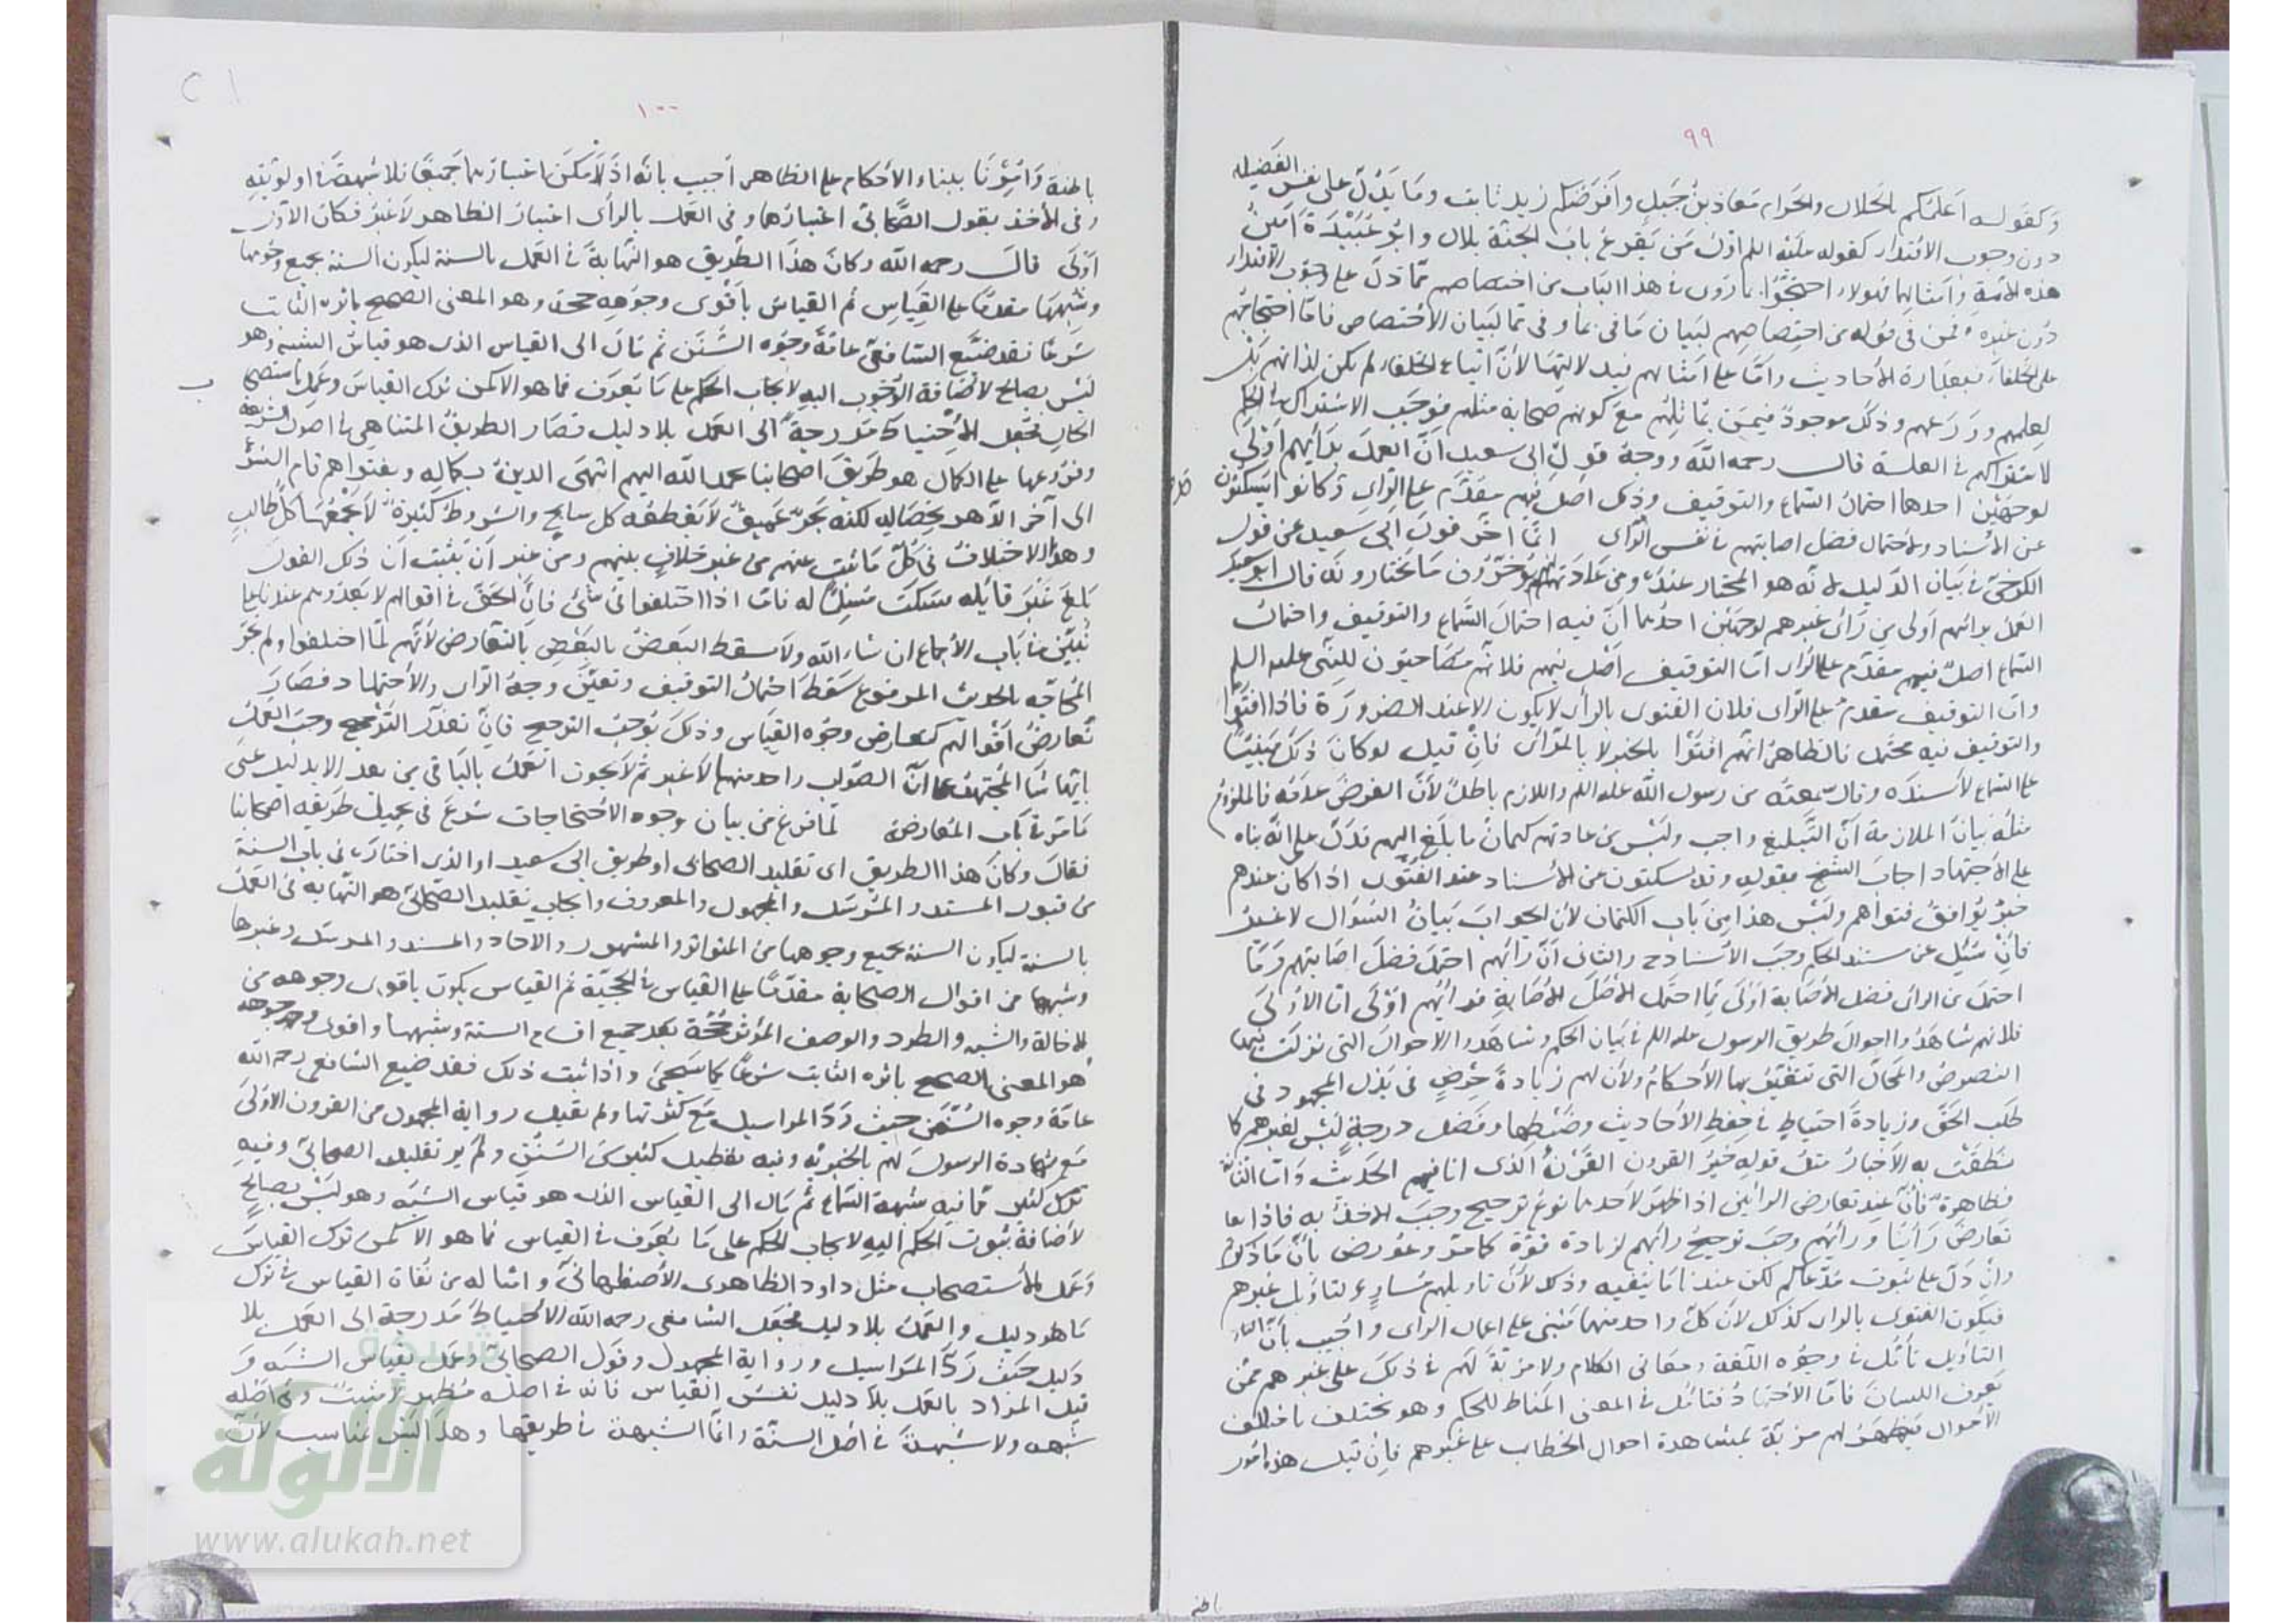 ٩٩
وكقوله اعلمكم بالحلال والحرام معاذ بن جبل وافرضكم زيد بن ثابت وما يدل على نفس الفضيلة
دون وجوب الاقتداء كقوله عليه السلم اول من يقرع باب الجنة بلال وابو عبيدة امين
هذه الامة وامثالها فهولاء احتجوا بما روى في هذا الباب من اختصاصهم مما دل على وجوب الاقتداء
دون غيره فمن في قوله من اختصاصهم لبيان ما في بما وفي مما لبيان الاختصاص فاما احتجاجهم
على الخلفاء فبعبارة الاحاديث واما على امثالهم فبدلالتها لأن اتباع الخلفاء لم يكن لذاتهم بل
لعلمهم وورعهم وذلك موجود فيمن يماثلهم مع كونهم صحابة مثلهم فوجب الاشتراك في الحكم
لاشتراكهم في العلة قال رحمه الله ووجه قول ابى سعيد ان العمل برأيهم أولى
لوجهين احدهما احتمال السماع والتوقيف وذلك اصل فيهم مقدم على الراى وكانوا يسكتون
عن الاسناد ولاحتمال فضل اصابتهم في نفس الرأى انما اخر قول ابى سعيد عن قول
الكرخى في بيان الدليل لانه هو المختار عنده ومن عادتهم انهم يؤخرون ما يختارونه قال ابو سعيد
العمل برائهم اولى من رأى غيرهم لوجهين احدهما أن فيه احتمال السماع والتوقيف واحتمال
السماع اصل فيهم مقدم على الراى اما التوقيف اصل فيهم فلانهم مصاحبون للنبى عليه السلم
واما التوقيف مقدم على الراى فلان الفتوى بالرأى لا يكون الا عند الضرورة فاذا افتوا
والتوقيف فيه محتمل فالظاهر انهم افتوا بالخبر لا بالرأى فان قيل لو كان ذلك مبنيا
على السماع لاسنده وقال سمعته من رسول الله عليه السلم واللازم باطل لأن الفرض عدمه فالملزوم
مثله بيان الملازمة أن التبليغ واجب وليس من عادتهم كتمان ما بلغ اليهم فدل على انه بناه
على الاجتهاد اجاب الشيخ بقوله وقد يسكتون عن الاسناد عند الفتوى اذا كان عندهم
خبر يوافق فتواهم وليس هذا من باب الكتمان لان الجواب بيان السؤال لا غير
فان سئل عن سند الحكم وجب الاسناد ح والثانى أن رائهم احتمل فضل اصابتهم وما
احتمل من الرائ فضل الاصابة اولى مما احتمل اصل الاصابة فرائهم اولى اما الاولى
فلانهم شاهدوا احوال طريق الرسول عليه السلم في بيان الحكم وشاهدوا الاحوال التى نزلت فيها
النصوص والمحال التى تتغير بها الأحكام ولأن لهم زيادة حرص في بذل المجهود في
طلب الحق وزيادة احتياط في حفظ الأحاديث وضبطها وفضل درجة ليس لغيرهم كما
نطقت به الأخبار مثل قوله خير القرون القرن الذى انا فيهم الحديث واما الثانية
فظاهرة فأن عند تعارض الرائين اذا ظهر لأحدهما نوع ترجيح وجب الاخذ به فاذا
تعارض رأينا ورأيهم وجب ترجيح رائهم لزيادة قوة كما مر وعورض بأن ما ذكرتم
وان دل على ثبوت مدعاكم لكن عندنا ما ينفيه وذلك لأن تاويلهم مساو لتاويل غيرهم
فيكون الفتوى بالراى كذلك لأن كل واحد منهما مبنى على اعمال الراى واجيب بأن
التاويل تأمل في وجوه اللغة ومعانى الكلام ولا مزية لهم في ذلك على غيرهم ممن
يعرف اللسان فاما الاجتهاد فتامل في المعنى المناط للحكم وهو يختلف باختلاف
الأحوال فيظهر لهم مزية بمشاهدة احوال الخطاب على غيرهم فان قيل هذه امور
باطنة
١٠٠
باطنة وامرنا ببناء الأحكام على الظاهر اجيب بانه اذا امكن اعتبارهما جميعا فلا شبهة في اولويته
وفى الأخذ بقول الصحابى اعتبارهما وفى العمل بالرأى اعتبار الظاهر لا غير فكان الأول
اولى قال رحمه الله وكان هذا الطريق هو النهاية في العمل بالسنة ليكون السنة بجميع وجوهها
وشبهها مقدما على القياس ثم القياس بأقوى وجوهه حجة وهو المعنى الصحيح باثره الثابت
شرعا فقد ضيع الشافعى عامة وجوه السنن ثم مال الى القياس الذى هو قياس الشبه وهو
ليس بصالح لاضافة الوجوب اليه لايجاب الحكم على ما يعرف فما هو الا كمن ترك القياس وعمل باستصحاب
الحال فجعل الاحتياط مدرجة الى العمل بلا دليل فصار الطريق المتناهى في اصول الشريعة
وفروعها على الكمال هو طريق اصحابنا بحمد الله اليهم انتهى الدين بكماله وبفتواهم قام الشرع
الى آخر الدهر بخصاله لكنه بحر عميق لا يقطعه كل سابح والشروط كثيرة لا يجمعها كل طالب
وهذا الاختلاف في كل ما ثبت عنهم من غير خلاف بينهم ومن غير أن يثبت أن ذلك القول
بلغ غير قائله فسكت مسلما له فاما اذا اختلفوا في شئ فان الحق في اقوالهم لا يعدوهم عندنا على
نبين في باب الاجماع ان شاء الله ولا يسقط البعض بالبعض بالتعارض لأنهم لما اختلفوا ولم يجر
المحاجة بالحديث المرفوع سقط احتمال التوقيف وتعين وجه الراى والاجتهاد فصار
تعارض اقوالهم كتعارض وجوه القياس وذلك يوجب الترجيح فان تعذر الترجيح وجب العمل
بايها شاء المجتهد على أن الصواب واحد منها لا غير ثم لا يجوز العمل بالباقى من بعد الا بدليل على
ما مر في باب المعارضة لما فرغ من بيان وجوه الاحتجاجات شرع في تجميل طريقه اصحابنا
فقال وكان هذا الطريق اى تقليد الصحابى او طريق ابى سعيد او الذى اختاره فى باب السنة
من قبول المسند والمرسل والمجهول والمعروف وايجاب تقليد الصحابى هو النهاية فى العمل
بالسنة ليكون السنة بجميع وجوهها من المتواتر والمشهور والآحاد والمسند والمرسل وغيرها
وشبهها من اقوال الصحابة مقدما على القياس في الحجية ثم القياس يكون باقوى وجوهه من
الاخالة والشبه والطرد والوصف المؤثر حجة بعد جميع اقسام السنة وشبهها واقوى وجوهه
هو المعنى الصحيح باثره الثابت شرعا كما سيجئ واذا ثبت ذلك فقد ضيع الشافعى رحمه الله
عامة وجوه السنن حيث رد المراسيل مع كثرتها ولم يقبل رواية المجهول من القرون الاولى
مع شهادة الرسول لهم بالخيرية وفيه تعطيل كثير من السنن ولم ير تقليد الصحابى وفيه
ترك كثير مما فيه شبهة السماع ثم مال الى القياس الذى هو قياس الشبه وهو ليس بصالح
لاضافة ثبوت الحكم اليه لايجاب الحكم على ما يعرف في القياس فما هو الا كمن ترك القياس
وعمل بالاستصحاب مثل داود الظاهرى الأصفهانى وامثاله من نفاة القياس في ترك
ما هو دليل والعمل بلا دليل فجعل الشافعى رحمه الله الاحتياط مدرجة الى العمل بلا
دليل حيث رد المراسيل ورواية المجهول وقول الصحابى وعمل بقياس الشبه و
قيل المراد بالعمل بلا دليل نفس القياس فانه في اصله مظهر لا مثبت وفى اصله
شبهه ولا شبهة في اصل السنة وانما الشبهة في طريقها وهذا ليس بمناسب لأن
شبكة
الألوكة
www.alukah.net